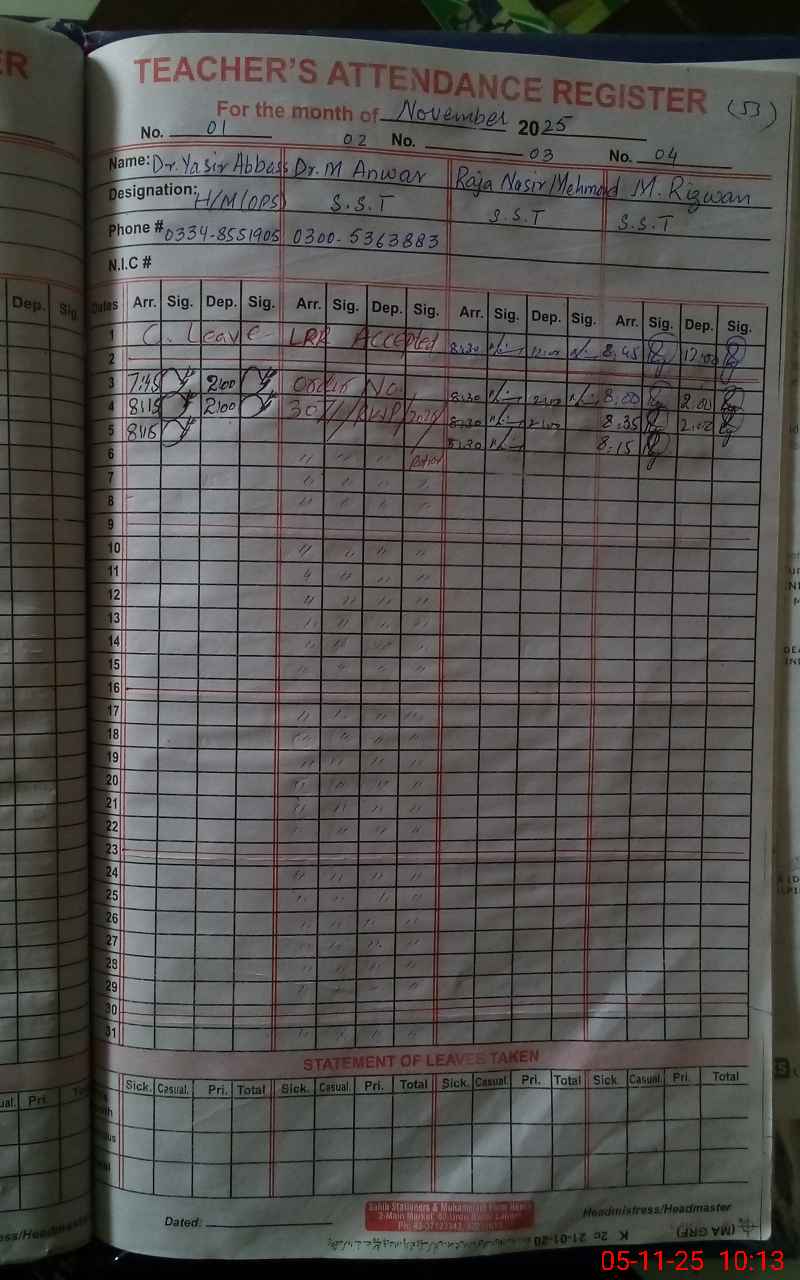 TEACHER'S ATTENDANCE REGISTER (53)
For the month of November 2025
No. 01 02 No. 03 No. 04
Name: Dr. Yasir Abbass Dr. M Anwar Raja Nasir Mehmood M. Rizwan
Designation: H/M (OPS) S.S.T S.S.T S.S.T
Phone # 0334-8551905 0300-5363883
N.I.C #
Dep. Sig.
Dates Arr. Sig. Dep. Sig. Arr. Sig. Dep. Sig. Arr. Sig. Dep. Sig. Arr. Sig. Dep. Sig.
1 C. Leave LRR Accepted 8:30 12:00 8.45 12.00
2
3 7:45 2:00 Order No 8.30 2:00 8.00 2.00
4 8:15 2:00 307/RWP/ 8:30 2:00 8.35 2.00
5 8:15 8:30 8.15
6 " " "
7 " " " "
8 " " " "
9
10 " " " "
11 " " " "
12 " " " "
13 " " " "
14 " " " "
15 " " " "
16
17 " " " "
18 " " " "
19 " " " "
20 " " " "
21 " " " "
22 " " " "
23
24 " " " "
25 " " " "
26 " " " "
27 " " " "
28 " " " "
29 " " " "
30
31 " " " "
STATEMENT OF LEAVES TAKEN
Sick. Casual. Pri. Total Sick. Casual. Pri. Total Sick. Casual. Pri. Total Sick. Casual. Pri. Total
Dated:
Headmistress/Headmaster
Sahib Stationers & Muhammadi Form House
2-Main Market 40 Urdu Bazar Lahore
(MA GRF)
K 2c 21-01-20
05-11-25 10:13